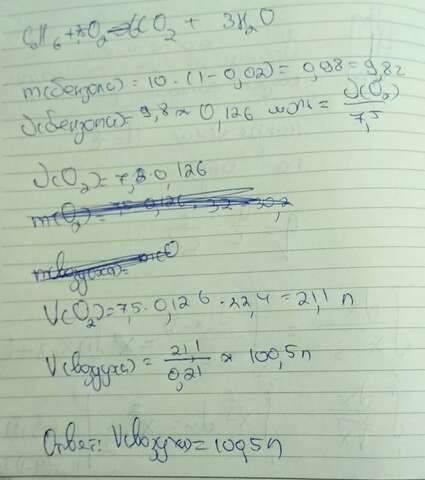 C₆H₆ + 7,5O₂ = 6CO₂ + 3H₂O
m(бензола) = 10 · (1 - 0,02) = 0,98 = 9,8 г
ν(бензола) = 9,8 ≈ 0,126 моль = ν(O₂)/7,5
ν(O₂) = 7,5 · 0,126
V(O₂) = 7,5 · 0,126 · 22,4 = 21,1 л
V(воздуха) = 21,1/0,21 ≈ 100,5 л
Ответ: V(воздуха) = 100,5 л